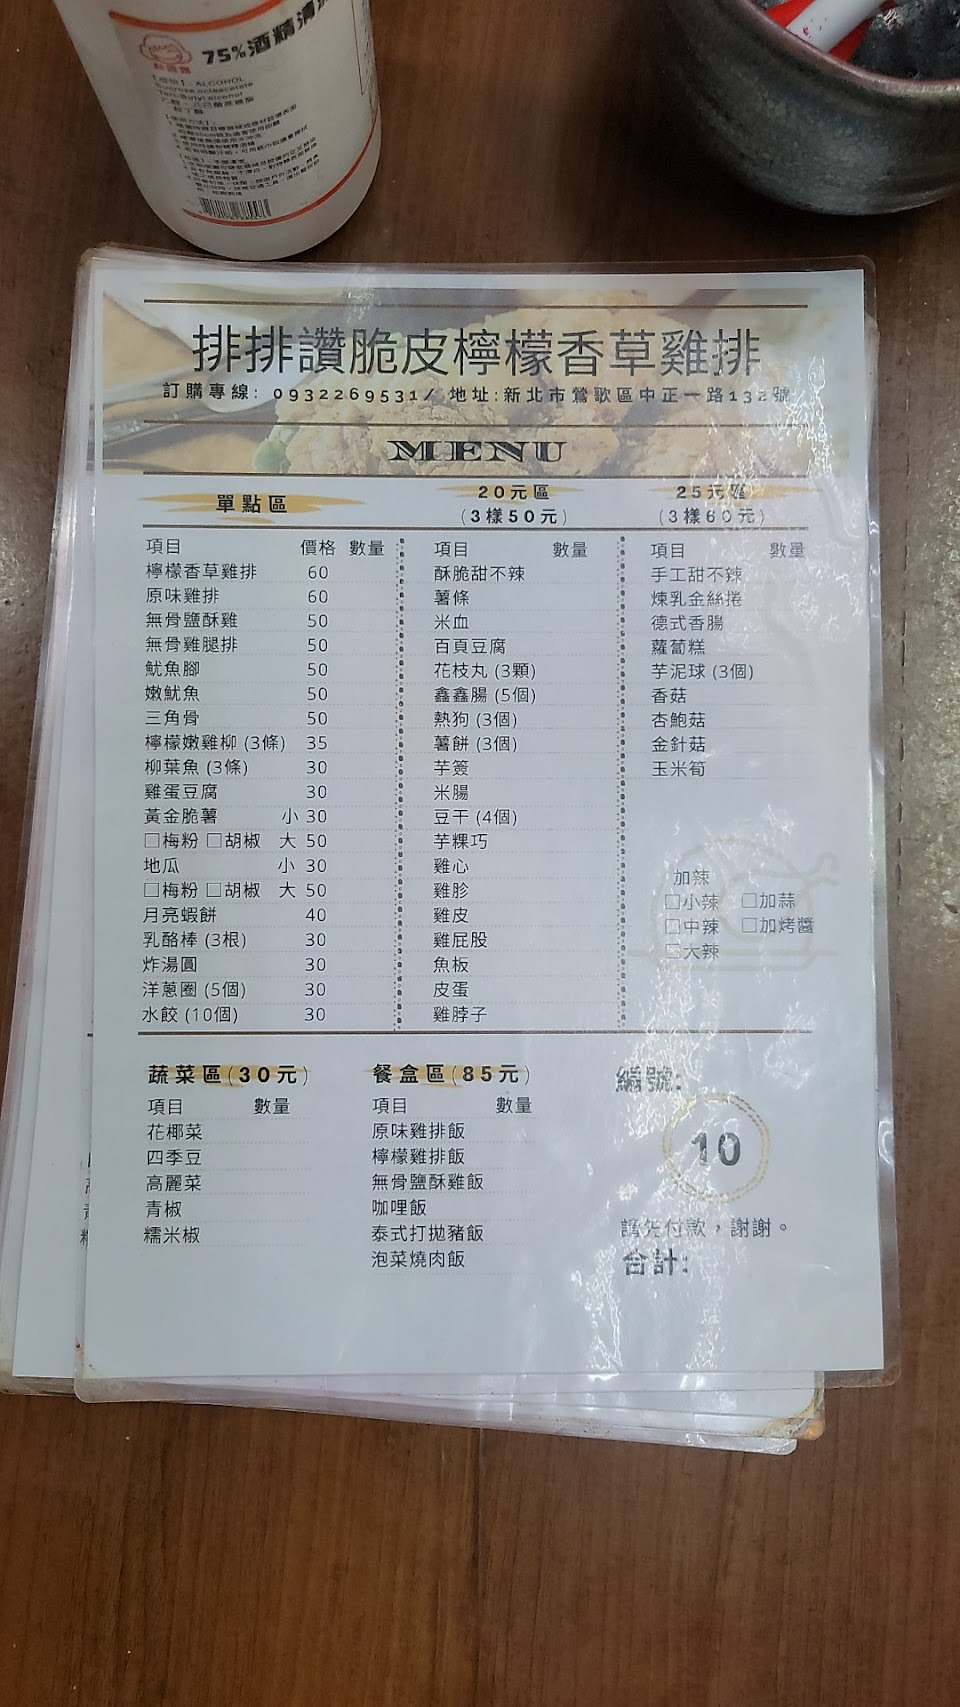 75%酒精清
ALCOHOL
排排讚脆皮檸檬香草雞排
訂購專線: 0932269531/ 地址:新北市鶯歌區中正一路132號
MENU
單點區
項目 價格 數量
檸檬香草雞排 60
原味雞排 60
無骨鹽酥雞 50
無骨雞腿排 50
魷魚腳 50
嫩魷魚 50
三角骨 50
檸檬嫩雞柳 (3條) 35
柳葉魚 (3條) 30
雞蛋豆腐 30
黃金脆薯 小 30
□梅粉 □胡椒 大 50
地瓜 小 30
□梅粉 □胡椒 大 50
月亮蝦餅 40
乳酪棒 (3根) 30
炸湯圓 30
洋蔥圈 (5個) 30
水餃 (10個) 30
20元區
(3樣50元)
項目 數量
酥脆甜不辣
薯條
米血
百頁豆腐
花枝丸 (3顆)
鑫鑫腸 (5個)
熱狗 (3個)
薯餅 (3個)
芋簽
米腸
豆干 (4個)
芋粿巧
雞心
雞胗
雞皮
雞屁股
魚板
皮蛋
雞脖子
25元區
(3樣60元)
項目 數量
手工甜不辣
煉乳金絲捲
德式香腸
蘿蔔糕
芋泥球 (3個)
香菇
杏鮑菇
金針菇
玉米筍
加辣
□小辣 □加蒜
□中辣 □加烤醬
□大辣
蔬菜區(30元)
項目 數量
花椰菜
四季豆
高麗菜
青椒
糯米椒
餐盒區(85元)
項目 數量
原味雞排飯
檸檬雞排飯
無骨鹽酥雞飯
咖哩飯
泰式打拋豬飯
泡菜燒肉飯
編號:
10
請先付款，謝謝。
合計: